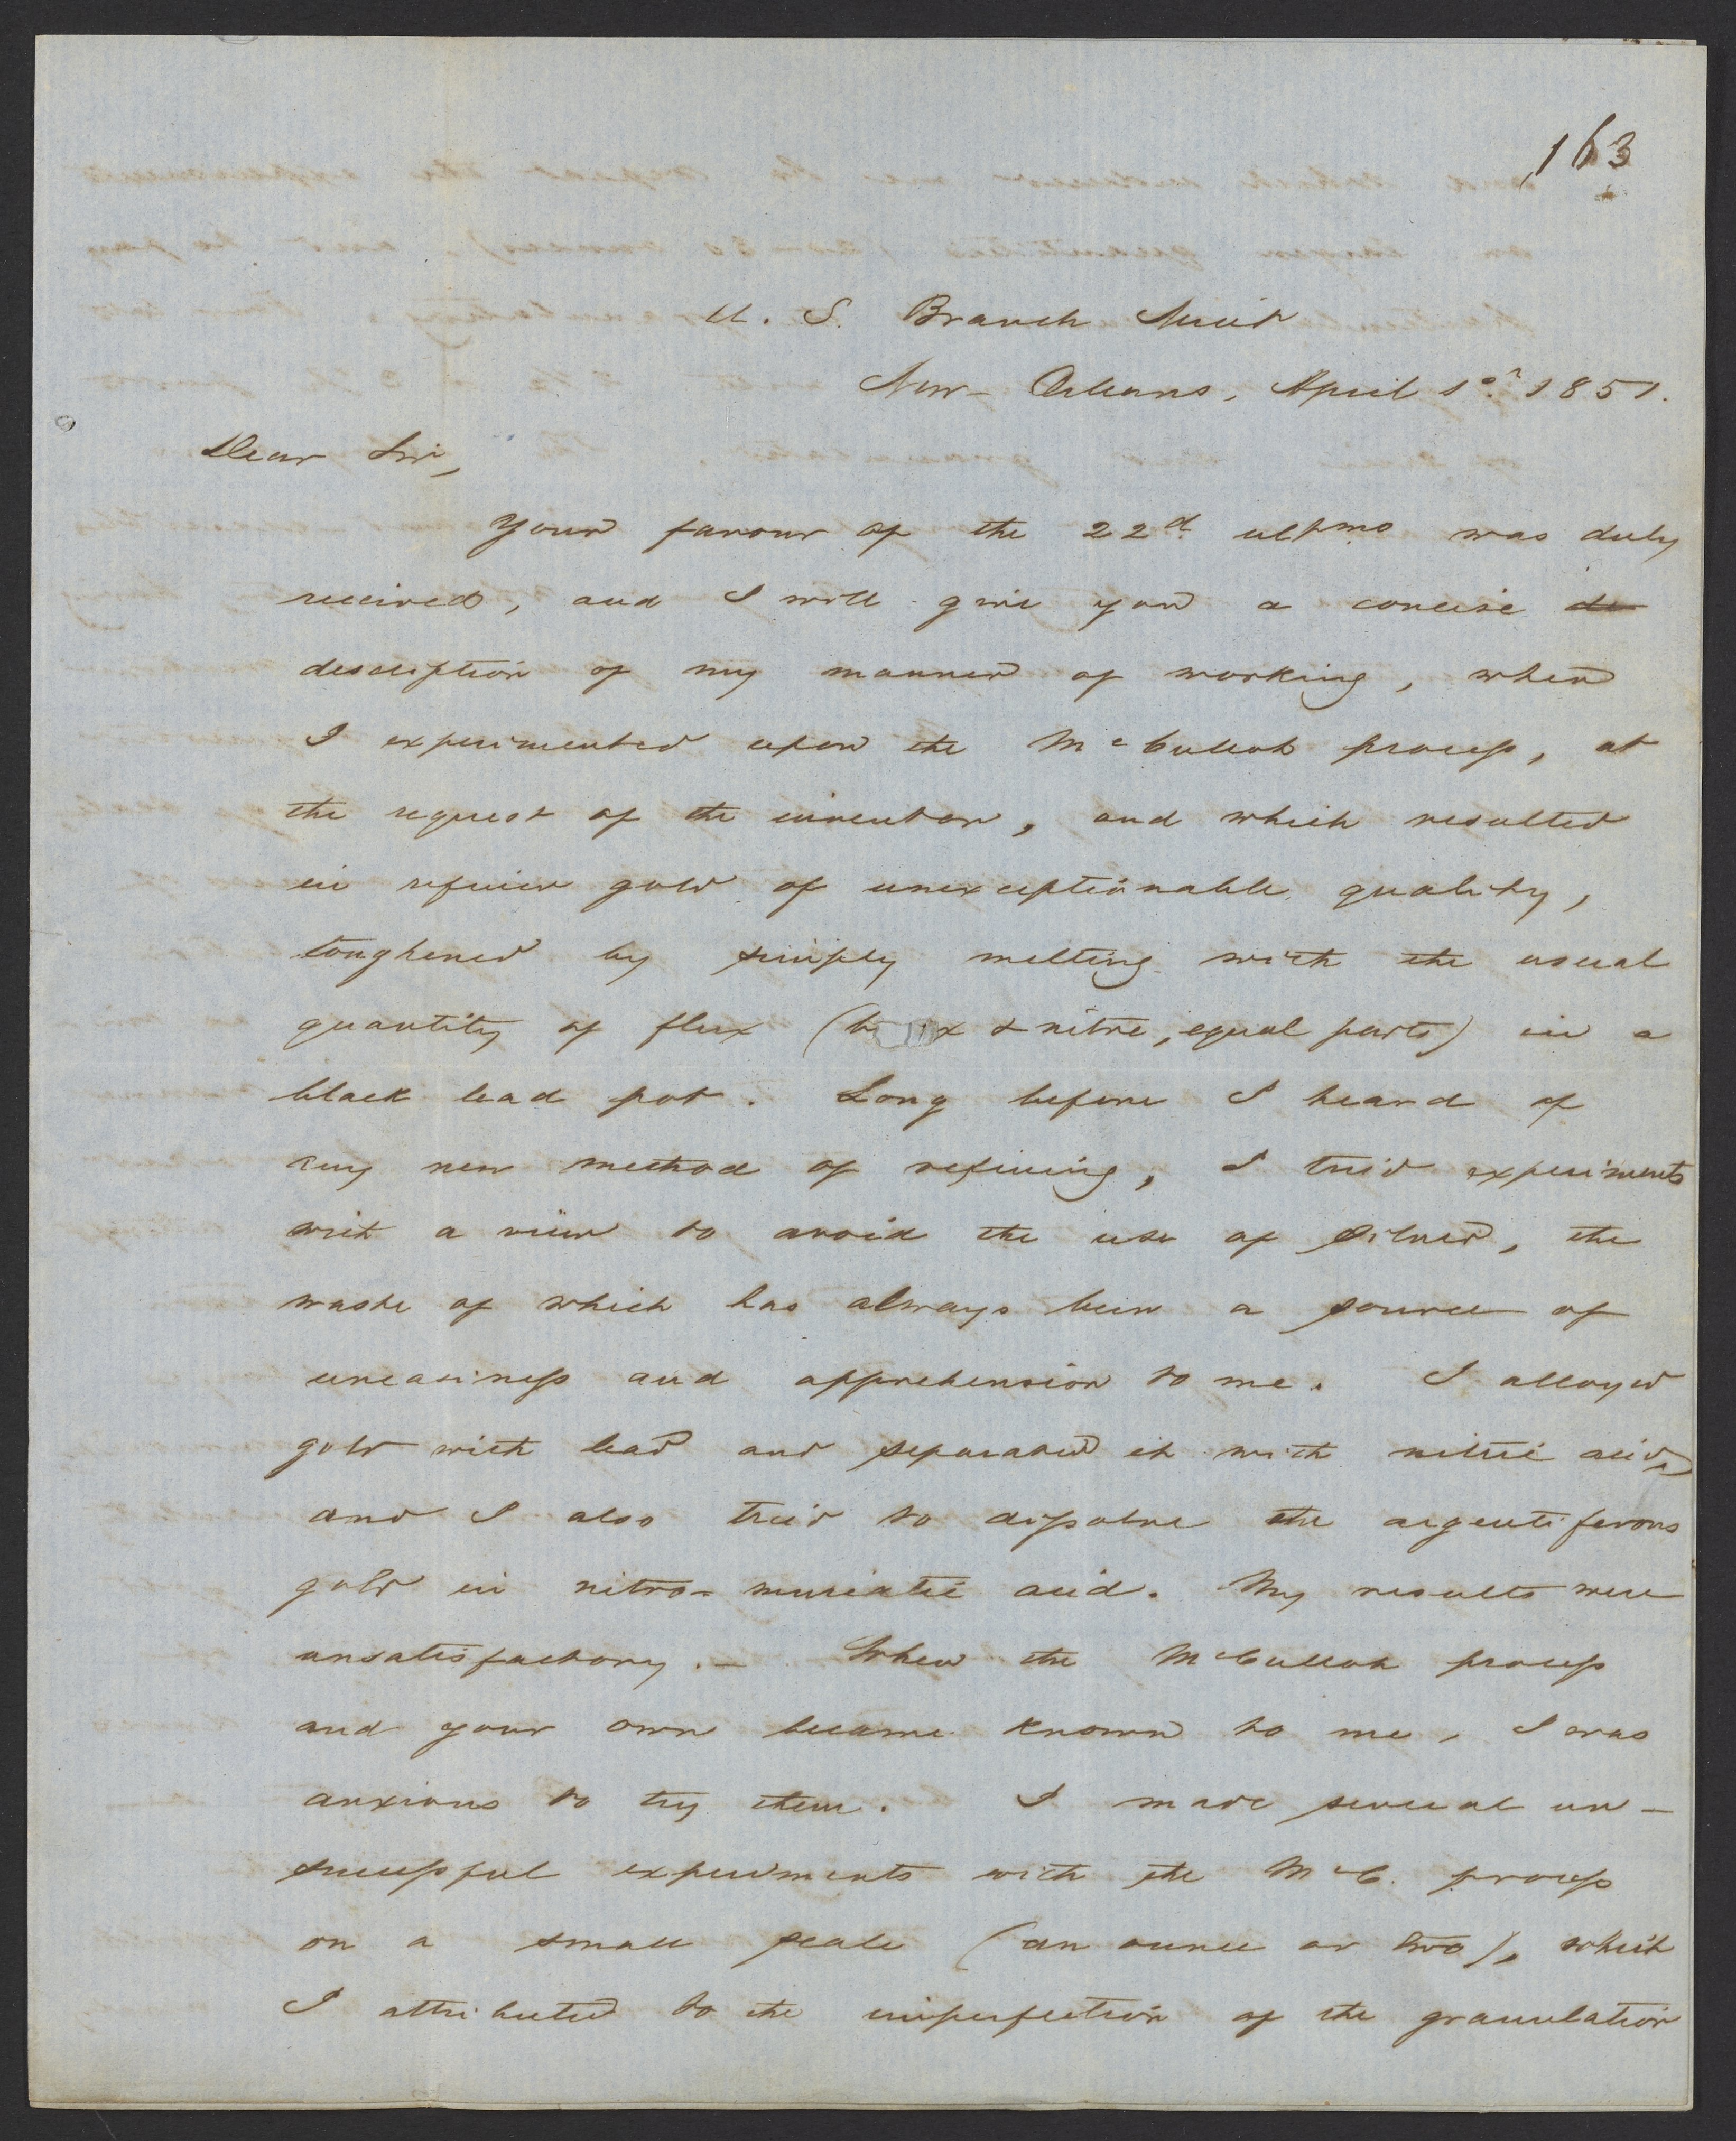 163
U. S. Branch Mint
New-Orleans, April 1st. 1851.
Dear Sir,
Your favour of the 22d. ultmo was duly
received, and I will give you a concise de
description of my manner of working, when
I experimented upon the McCulloh process, at
the request of the inventor, and which resulted
in refined gold of unexceptionable quality,
toughened by simply melting with the usual
quantity of flux (b x & nitre, equal parts) in a
black lead pot. Long before I heard of
any new method of refining, I tried experiments
with a view to avoid the use of silver, the
waste of which has always been a source of
uneasiness and apprehension to me. I alloyed
gold with lead and separated it with nitric acid,
and I also tried to dissolve the argentiferous
gold in nitro-muriatic acid. My results were
unsatisfactory. — When the McCulloh process
and your own became known to me, I was
anxious to try them. I made several un-
successful experiments with the McC. process
on a small scale (an ounce or two), which
I attributed to the imperfection of the granulation